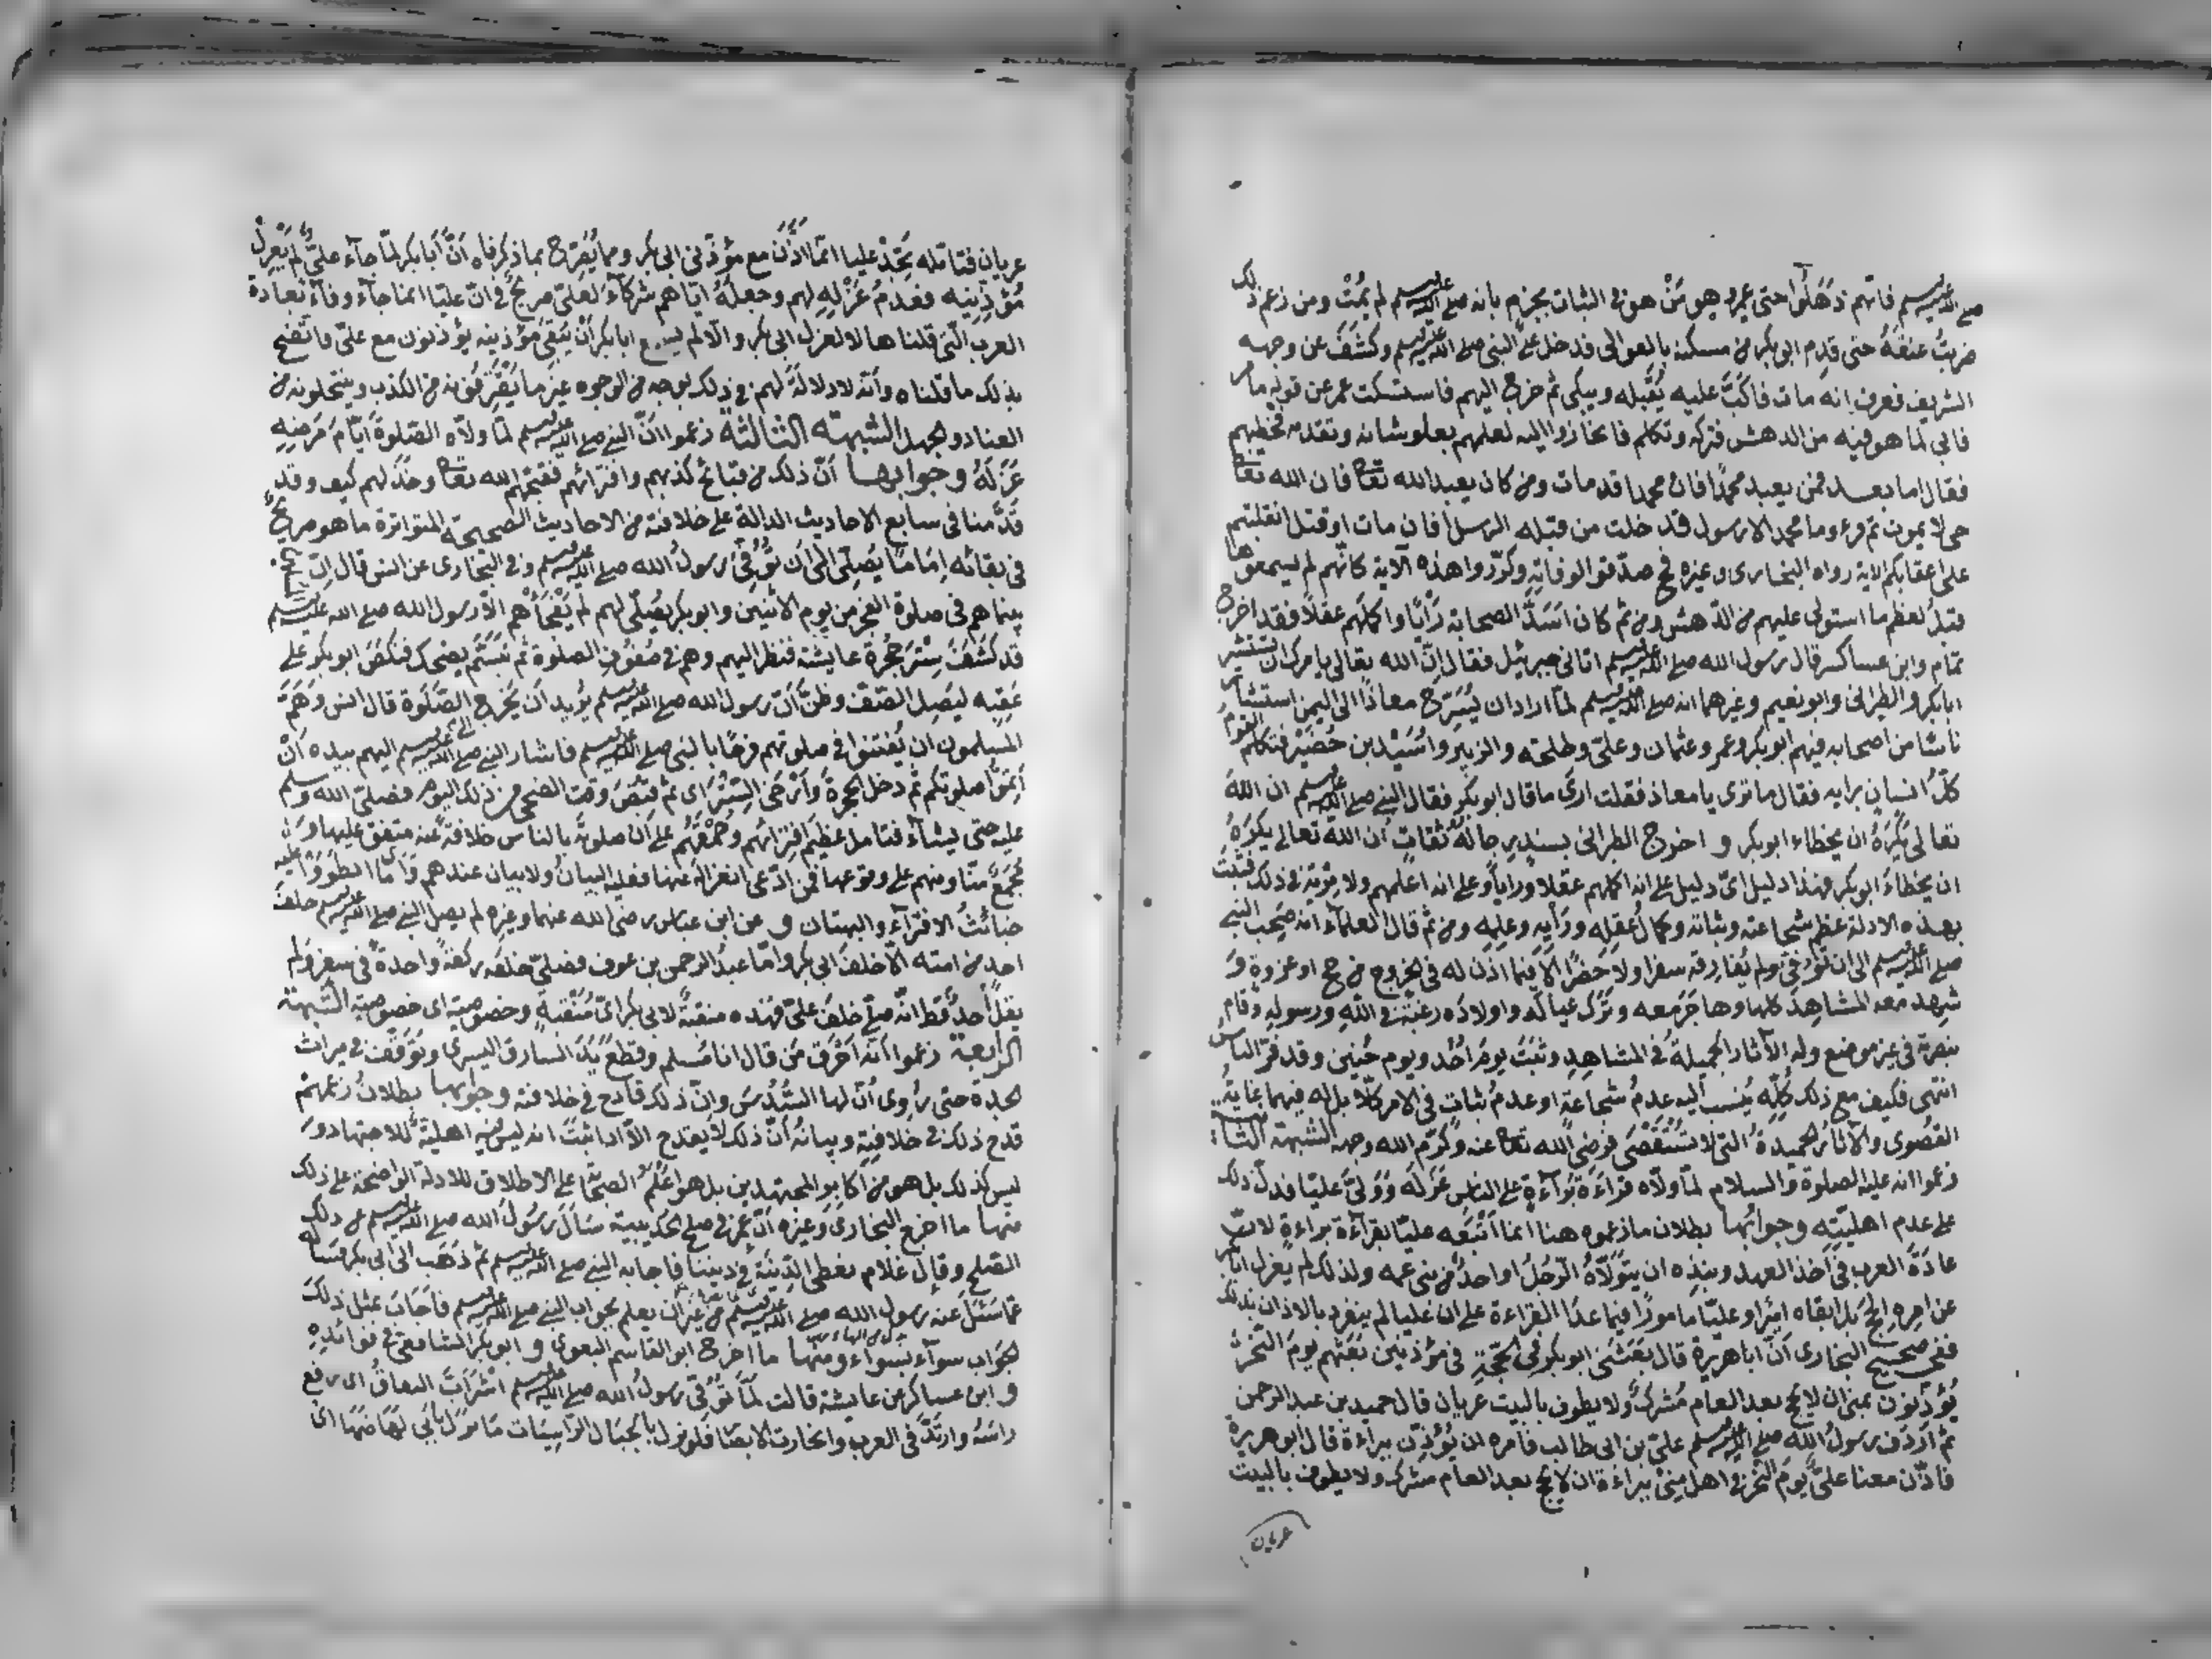 صلى الله عليه وسلم فانهم ذهلوا حتى عمر وهو من هو في الثبات بجزم بانه صلى الله عليه وسلم لم يمت ومن زعم ذلك
ضربت عنقه حتى قدم ابو بكر من مسكنه بالعوالى فدخل على النبي صلى الله عليه وسلم وكشف عن وجهه
الشريف فعرف انه مات فاكب عليه يقبله ويبكى ثم خرج اليهم فاستسكت عمر عن قوله ما مر
فابى لما هو فيه من الدهش فتركه وتكلم فانحازوا اليه لعلمهم بعلو شانه وتقدمه فخطبهم
فقال اما بعد فمن يعبد محمدا فان محمدا قد مات ومن كان يعبد الله تعا فان الله تعا
حى لا يموت ثم قرء وما محمد الا رسول قد خلت من قبله الرسل افان مات او قتل انقلبتم
على اعقابكم الاية رواه البخارى وغيره فح صدقوا لوفاته وكرروا هذه الآية كانهم لم يسمعوها
قبل لعظم ما استولى عليهم من الدهش ومن ثم كان اسد الصحابة رأيا واكملهم عقلا فقد اخرج
تمام وابن عساكر قال رسول الله صلى الله عليه وسلم اتانى جبرئيل فقال ان الله تعالى يامرك ان تستشير
ابا بكر والطبرانى وابو نعيم وغيرهما انه صلى الله عليه وسلم لما اراد ان يسرح معاذا الى اليمن استشار
ناسا من اصحابه فيهم ابو بكر وعمر وعثمان وعلى وطلحه والزبير واسيد بن حضير فتكلم القوم
كل انسان برايه فقال ما ترى يا معاذ فقلت ارى ما قال ابو بكر فقال النبي صلى الله عليه وسلم ان الله
تعالى يكره ان يخطاء ابو بكر و اخرج الطبرانى بسند رجاله ثقات ان الله تعالى يكره
ان يخطاء ابو بكر فهذا دليل اى دليل على انه اكملهم عقلا ورايا وعلى انه اعلمهم ولا مرية في ذلك فثبت
بهذه الادلة عظم شجاعته وثباته وكمال عقله ورأيه وعلمه ومن ثم قال العلماء انه صحب النبي
صلى الله عليه وسلم الى ان توفى ولم يفارقه سفرا ولا حضرا الا فيما اذن له في الخروج من حج او غزوة و
شهد معه المشاهد كلها وهاجر معه وترك عياله واولاده رغبة في الله ورسوله وقام
بنصرته في غير موضع وله الآثار الجميلة في المشاهد وثبت يوم احد ويوم حنين وقد فر الناس
انتهى فكيف مع ذلك كله ينسب اليه عدم شجاعة او عدم ثبات في الامر كلا بل له فيهما غاية
القصوى والآثار الحميدة التى لا تستقصى فرضى الله تعا عنه وكرم الله وجهه الشبهة الثانية
زعموا انه عليه الصلوة والسلام لما ولاه قراءة براءة على الناس عزله وولى عليا فدل ذلك
على عدم اهليته وجوابها بطلان ما زعموه هنا انما اتبعه عليا لقراءة براءة لان
عادة العرب في اخذ العهد ونبذه ان يتولاه الرجل او احد من بنى عمه ولذلك لم يعزل ابا بكر
عن امره الحج بل ابقاه اميرا وعليا مامورا فيما عدا القراءة على ان عليا لم ينفرد بالاذان بذلك
ففى صحيح البخارى ان ابا هريرة قال بعثنى ابو بكر في الحجة في مؤذنين بعثهم يوم النحر
يؤذنون بمنى ان لا يحج بعد العام مشرك ولا يطوف بالبيت عريان قال حميد بن عبد الرحمن
ثم اردف رسول الله صلى الله عليه وسلم على بن ابى طالب فامره ان يؤذن ببراءة قال ابو هريرة
فاذن معنا على يوم النحر في اهل منى ببراءة ان لا يحج بعد العام مشرك ولا يطوف بالبيت
عريان
عريان فتامله تجد عليا انما اذن مع مؤذنى ابى بكر ومما يصرح بما ذكرناه ان ابا بكر لما جاء على لم يعزل
مؤذنيه فعدم عزله لهم وجعله اياهم شركاء لعلى صريح في ان عليا انما جاء وفاء بعادة
العرب التى قلناها لا لعزل ابى بكر والا لم يسع ابا بكر ان يبقى مؤذنيه يؤذنون مع على فاتضح
بذلك ما قلناه وانه لا دلالة لهم في ذلك بوجه من الوجوه غير ما يفترونه من الكذب وينتحلونه من
العناد والجهل الشبهة الثالثة زعموا ان النبي صلى الله عليه وسلم لما ولاه الصلوة ايام مرضه
عزله وجوابها ان ذلك من قبائح كذبهم وافترائهم فقبحهم الله تعا وخذلهم كيف وقد
قدمنا في سابع الاحاديث الدالة على خلافته من الاحاديث الصحيحة المتواترة ما هو صريح
في بقائه اماما يصلى الى ان توفى رسول الله صلى الله عليه وسلم وفي البخارى عن انس قال ان
بينا هم في صلوة الفجر من يوم الاثنين وابو بكر يصلى لهم لم يفجأهم الا رسول الله صلى الله عليه وسلم
قد كشف ستر حجرة عايشة فنظر اليهم وهم في صفوف الصلوة ثم تبسم يضحك فنكص ابو بكر على
عقبه ليصل الصف وظن ان رسول الله صلى الله عليه وسلم يريد ان يخرج الى الصلوة قال انس وهم
المسلمون ان يفتتنوا في صلوتهم فرحا بالنبى صلى الله عليه وسلم فاشار النبي صلى الله عليه وسلم اليهم بيده ان
اتموا صلوتكم ثم دخل الحجرة وارخى الستر اى ثم قبض وقت الضحى من ذلك اليوم فصلى الله وسلم
عليه حتى يشاء فتامل عظيم افترائهم وحمقهم على ان صلوته بالناس خلافة عنه متفق عليها و
مجمع منا ومنهم على وقوعها فمن ادعى انعزاله عنها فعليه البيان ولا بيان عندهم وانما انطووا عليه
خبائث الافتراء والبهتان و عن ابن عباس رضى الله عنهما وغيره لم يصل النبي صلى الله عليه وسلم خلف
احد من امته الا خلف ابى بكر واما عبد الرحمن بن عوف فصلى خلفه ركعة واحدة في سفر ولم
يقل احد قط انه صلى خلف على فهذه منقبة لابى بكر اى منقبة وخصوصية اى خصوصية الشبهة
الرابعة زعموا انه احرق من قال انا مسلم وقطع يد السارق اليسرى وتوقف في ميراث
الجدة حتى روى ان لها السدس وان ذلك قادح في خلافته وجوابها بطلان زعمهم
قدح ذلك في خلافته وبيانه ان ذلك لا يقدح الا اذا ثبت انه ليس فيه اهلية للاجتهاد و
ليس كذلك بل هو من اكابر المجتهدين بل هو اعلم الصحابة على الاطلاق للادلة الواضحة على ذلك
منها ما اخرج البخارى وغيره ان عمر في صلح الحديبية سأل رسول الله صلى الله عليه وسلم عن ذلك
الصلح وقال علام نعطى الدنية في ديننا فاجابه النبي صلى الله عليه وسلم ثم ذهب الى ابى بكر فساله
عما سئل عنه رسول الله صلى الله عليه وسلم من غير ان يعلم بجواب النبي صلى الله عليه وسلم فاجاب بمثل ذلك
الجواب سواء بسواء ومنها ما اخرج ابو القاسم البغوى و ابو بكر الشافعى في فوائده
و ابن عساكر عن عايشة قالت لما توفى رسول الله صلى الله عليه وسلم اشرأب النفاق اى رفع
راسه وارتد في العرب وانحازت الانصار فلو نزل بالجبال الراسيات ما نزل بابى لهاضها اى